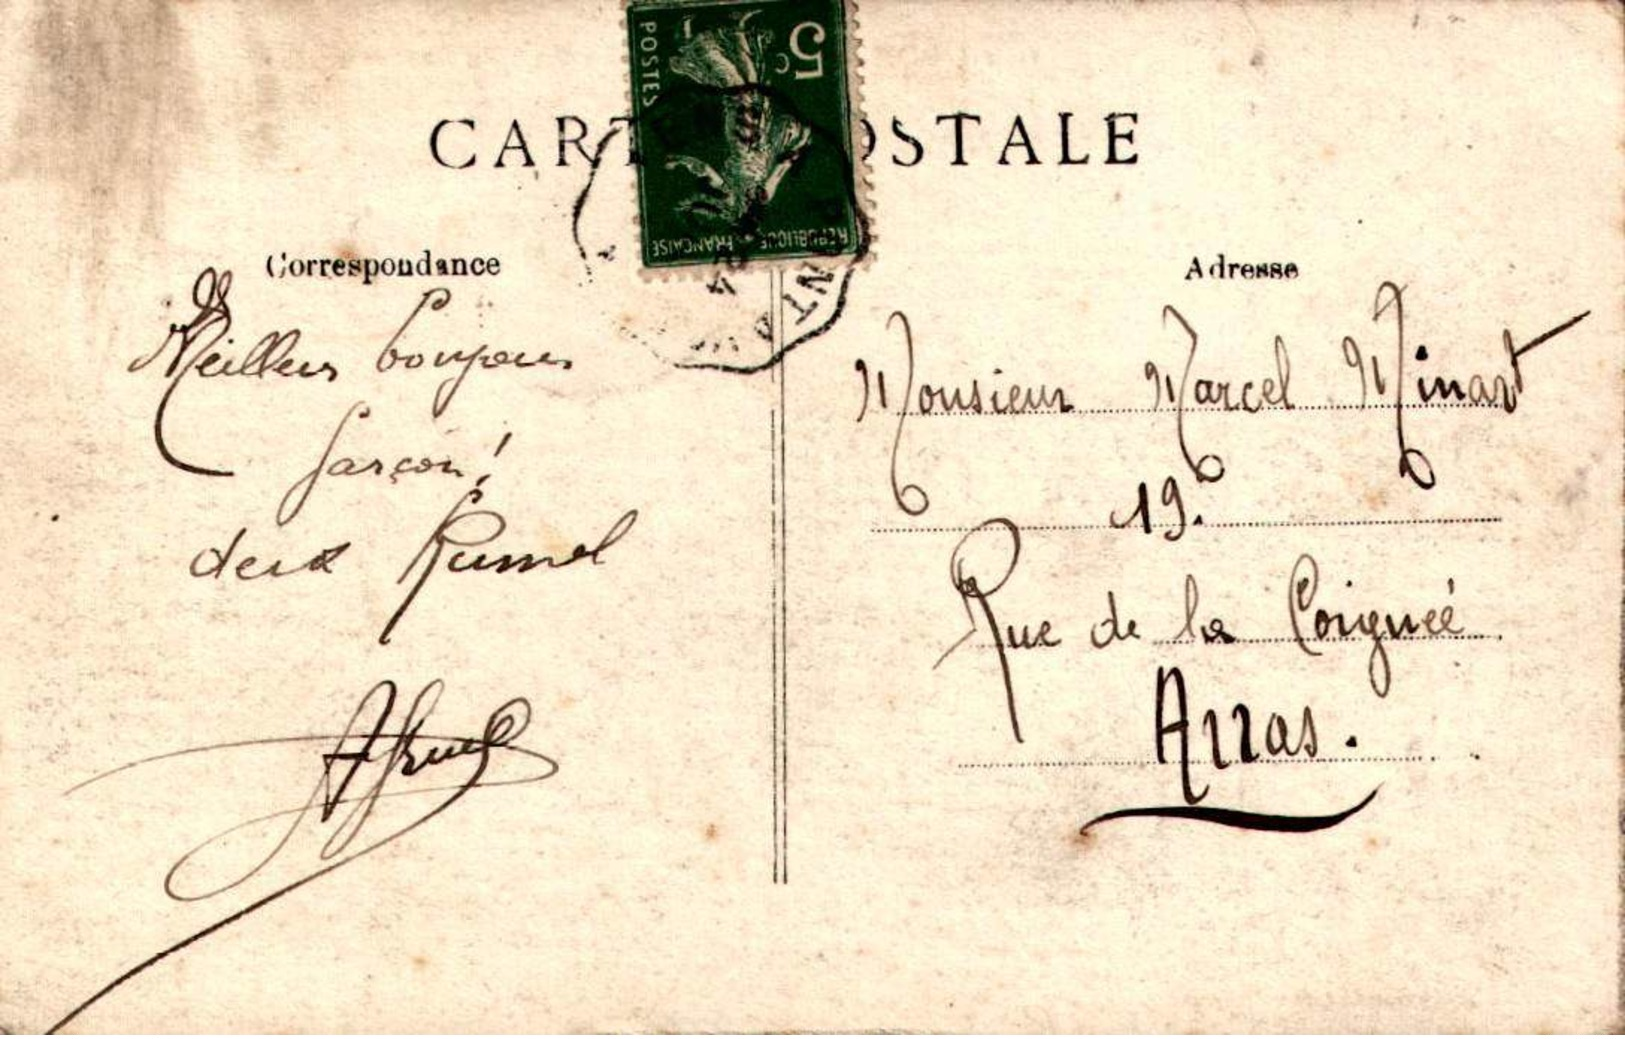 CARTE POSTALE
POSTES
5c
REPUBLIQUE FRANÇAISE
Correspondance
Meilleur bonjour
garçon!
Adresse
Monsieur Marcel Minart
19.
Rue de la Coigneé
Arras.